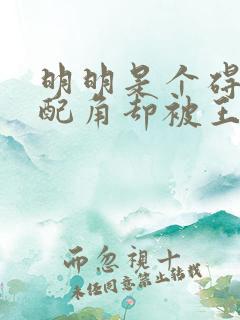 明明是个碍
配角却被王
而忽視十
未经同意禁止转载